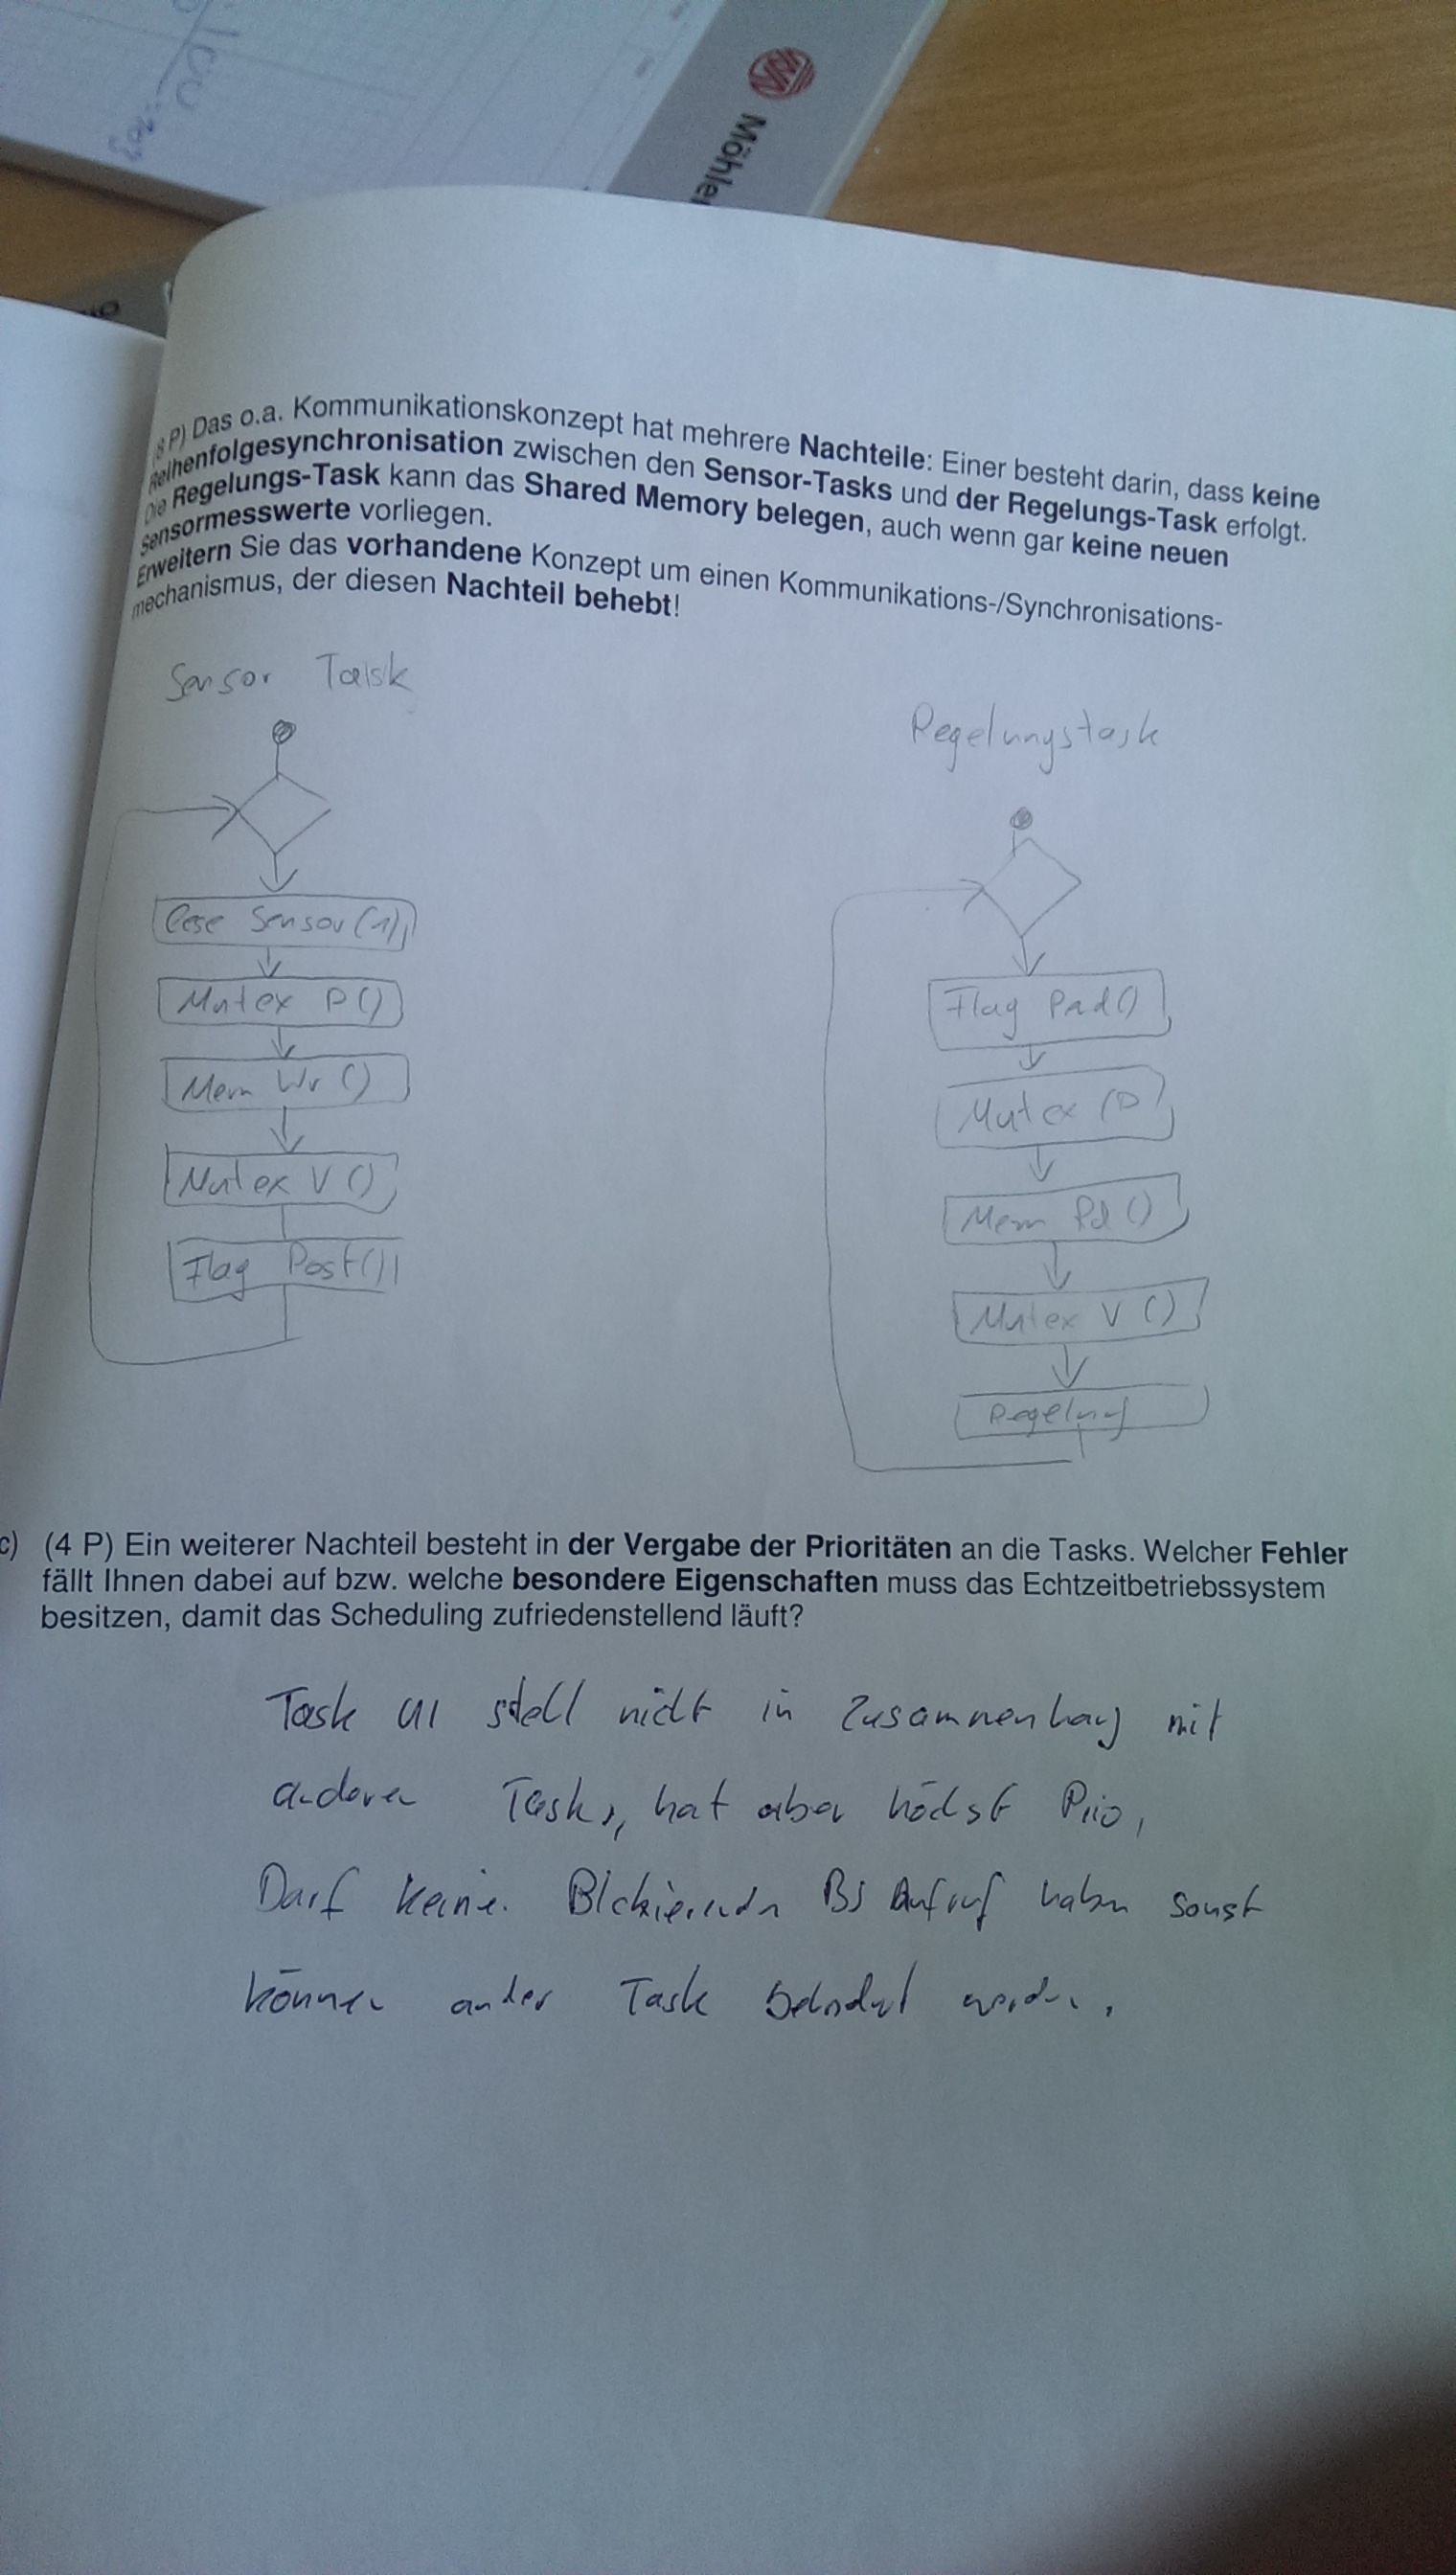 Möhle
8 P) Das o.a. Kommunikationskonzept hat mehrere Nachteile: Einer besteht darin, dass keine
Reihenfolgesynchronisation zwischen den Sensor-Tasks und der Regelungs-Task erfolgt.
Die Regelungs-Task kann das Shared Memory belegen, auch wenn gar keine neuen
Sensormesswerte vorliegen.
Erweitern Sie das vorhandene Konzept um einen Kommunikations-/Synchronisations-
mechanismus, der diesen Nachteil behebt!
Sensor Task
lese Sensor(1)
Mutex P()
Mem Wr()
Mutex V()
Flag Post()
Regelungstask
Flag Pend()
Mutex P
Mem Rd()
Mutex V()
Regelung
c) (4 P) Ein weiterer Nachteil besteht in der Vergabe der Prioritäten an die Tasks. Welcher Fehler
fällt Ihnen dabei auf bzw. welche besondere Eigenschaften muss das Echtzeitbetriebssystem
besitzen, damit das Scheduling zufriedenstellend läuft?
Task stell nicht in Zusammenhang mit
anderen Tasks, hat aber höchst Prio,
Darf keine BS Aufruf haben sonst
können ander Task werden.